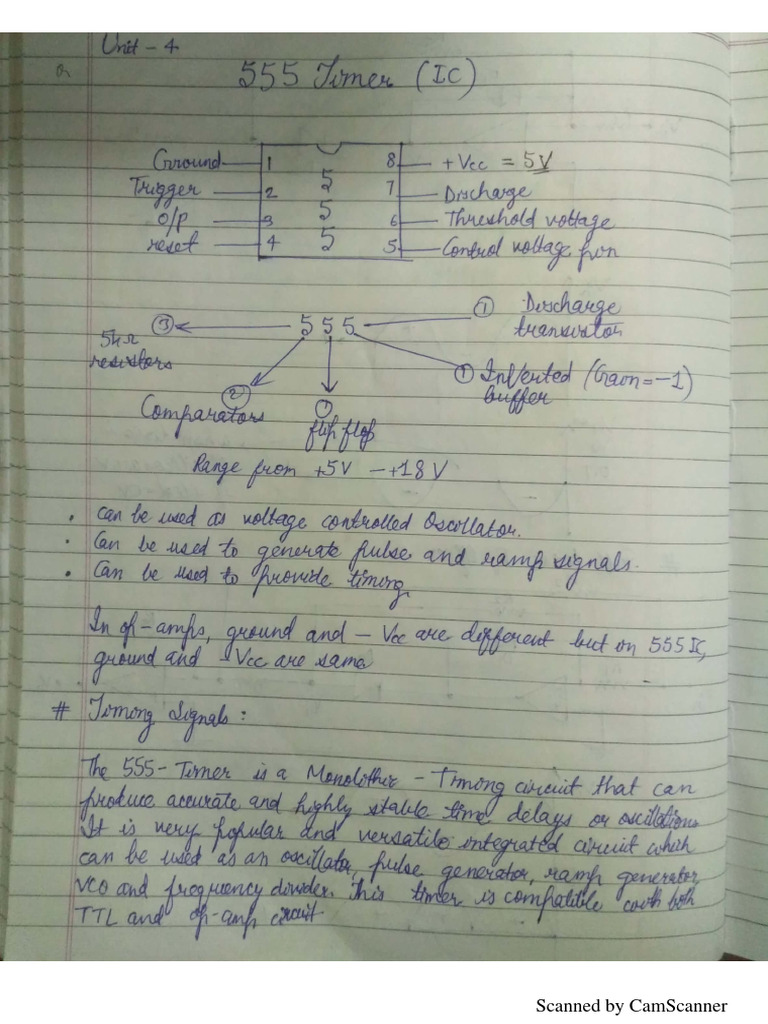 Unit - 4
555 Timer (IC)
Ground 1 5 8 +Vcc = 5V
Trigger 2 5 7 Discharge
O/P 3 5 6 Threshold voltage
reset 4 5 Control voltage pin
5 5 5
③ 5kΩ
resistors
② Comparators
① flip flop
① Inverted (Gain = -1)
buffer
① Discharge
transistor
Range from +5V - +18V
• Can be used as voltage controlled Oscillator.
• Can be used to generate pulse and ramp signals.
• Can be used to provide timing
In op-amps, ground and - Vcc are different but in 555 IC,
ground and -Vcc are same
# Timing Signals :
The 555- Timer is a Monolithic - Timing circuit that can
produce accurate and highly stable time delays or oscillations
It is very popular and versatile integrated circuit which
can be used as an oscillator, pulse generator, ramp generator,
VCO and frequency divider. This timer is compatible with both
TTL and op-amp circuit
Scanned by CamScanner